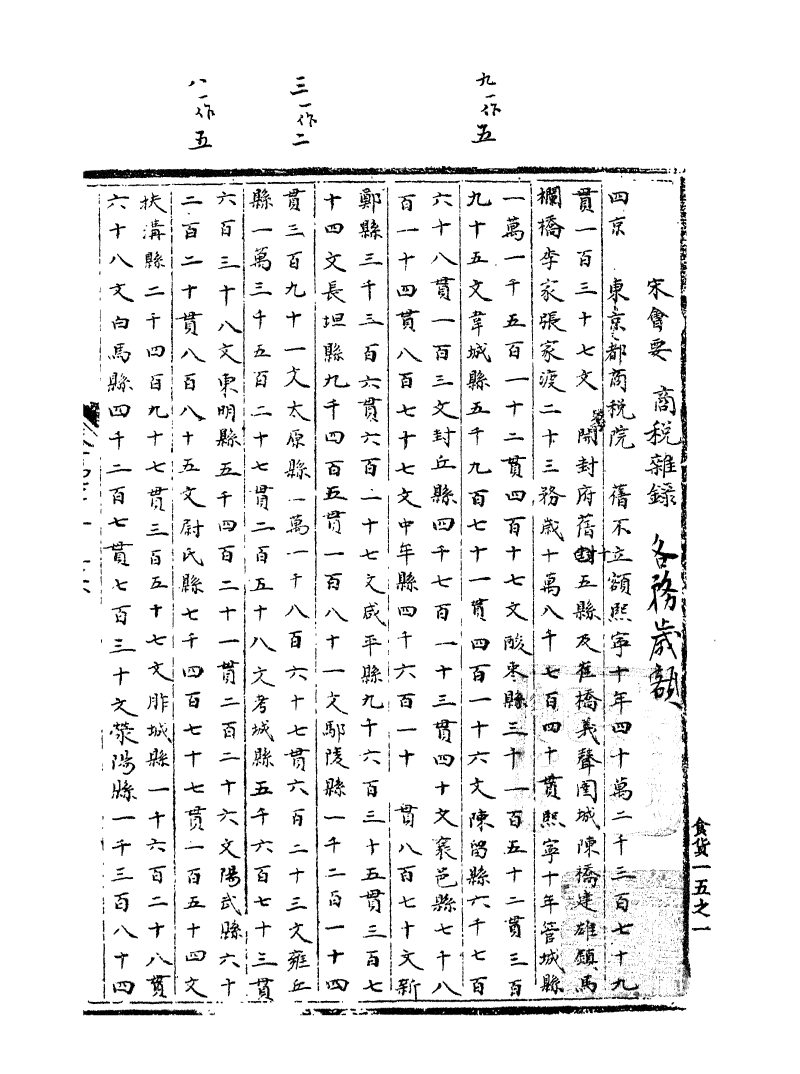 九一作五
三一作二
八一作五
宋會要 商税雜錄 各務歲額
四京 東京都商税院 舊不立額熙寧十年四十萬二千三百七十九
貫一百三十七文 開封府舊十五縣及崔橋義聲圉城陳橋建雄鎮馬
欄橋李家張家渡二十三務歲十萬八千七百四十貫熙寧十年管城縣
一萬一千五百一十二貫四百十七文酸棗縣三千一百五十二貫三百
九十五文韋城縣五千九百七十一貫四百一十六文陳留縣六千七百
六十八貫一百三文封丘縣四千七百一十三貫四十文襄邑縣七千八
百一十四貫八百七十七文中牟縣四千六百一十 貫八百七十文新
鄭縣三千三百六貫六百一十七文咸平縣九千六百三十五貫三百七
十四文長垣縣九千四百五貫一百八十一文鄢陵縣一千二百一十四
貫三百九十一文太原縣一萬一千八百六十七貫六百二十三文雍丘
縣一萬三千五百二十七貫二百五十八文考城縣五千六百七十三貫
六百三十八文東明縣五千四百二十一貫二百二十六文陽武縣六十
二百二十貫八百八十五文尉氏縣七千四百七十七貫一百五十四文
扶溝縣二千四百九十七貫三百五十七文胙城縣一十六百二十八貫
六十八文白馬縣四千二百七貫七百三十文滎陽縣一千三百八十四
食貨一五之一